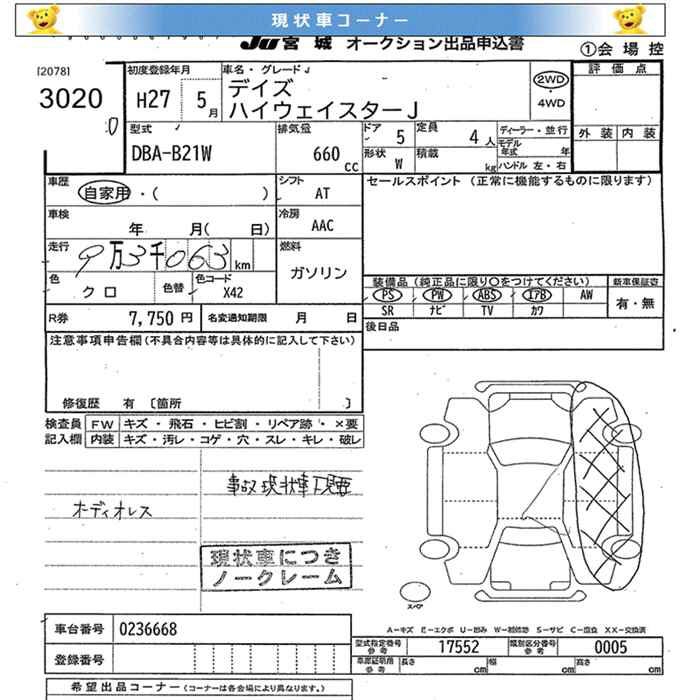 現状車コーナー
JU宮城 オークション出品申込書
①会場控
[2078]
3020
初度登録年月
H27 5月
車名・グレード J
デイズ
ハイウェイスターJ
2WD
・
4WD
評価点
外装 内装
型式
DBA-B21W
排気量
660 cc
ドア 5
形状 W
定員 4人
積載 kg
ディーラー・並行
モデル年式 年
ハンドル 左・右
車歴
自家用・( )
シフト
AT
セールスポイント (正常に機能するものに限ります)
車検
年 月( 日)
冷房
AAC
走行
9万3千063km
燃料
ガソリン
色
クロ
色替
色コード
X42
装備品 (純正品に限り〇をつけてください)
新車保証書
PS PW ABS エアB AW
SR ナビ TV カワ
有・無
R券 7,750円
名変通知期限 月 日
後日品
注意事項申告欄(不具合内容等は具体的に記入して下さい)
修復歴 有 [箇所 ]
検査員記入欄
FW キズ・飛石・ヒビ割・リペア跡・×要
内装 キズ・汚レ・コゲ・穴・スレ・キレ・破レ
事故現状車
オーディオレス
現状車につき
ノークレーム
スペア
A-キズ E-エクボ U-凹み W-補修跡 S-サビ C-腐食 X-要交換 XX-交換済
車台番号 0236668
型式指定番号 参考 17552
類別区分番号 参考 0005
登録番号
車庫証明用 参考 長さ cm 幅 cm 高さ cm
希望出品コーナー (コーナーは各会場により異なります。)